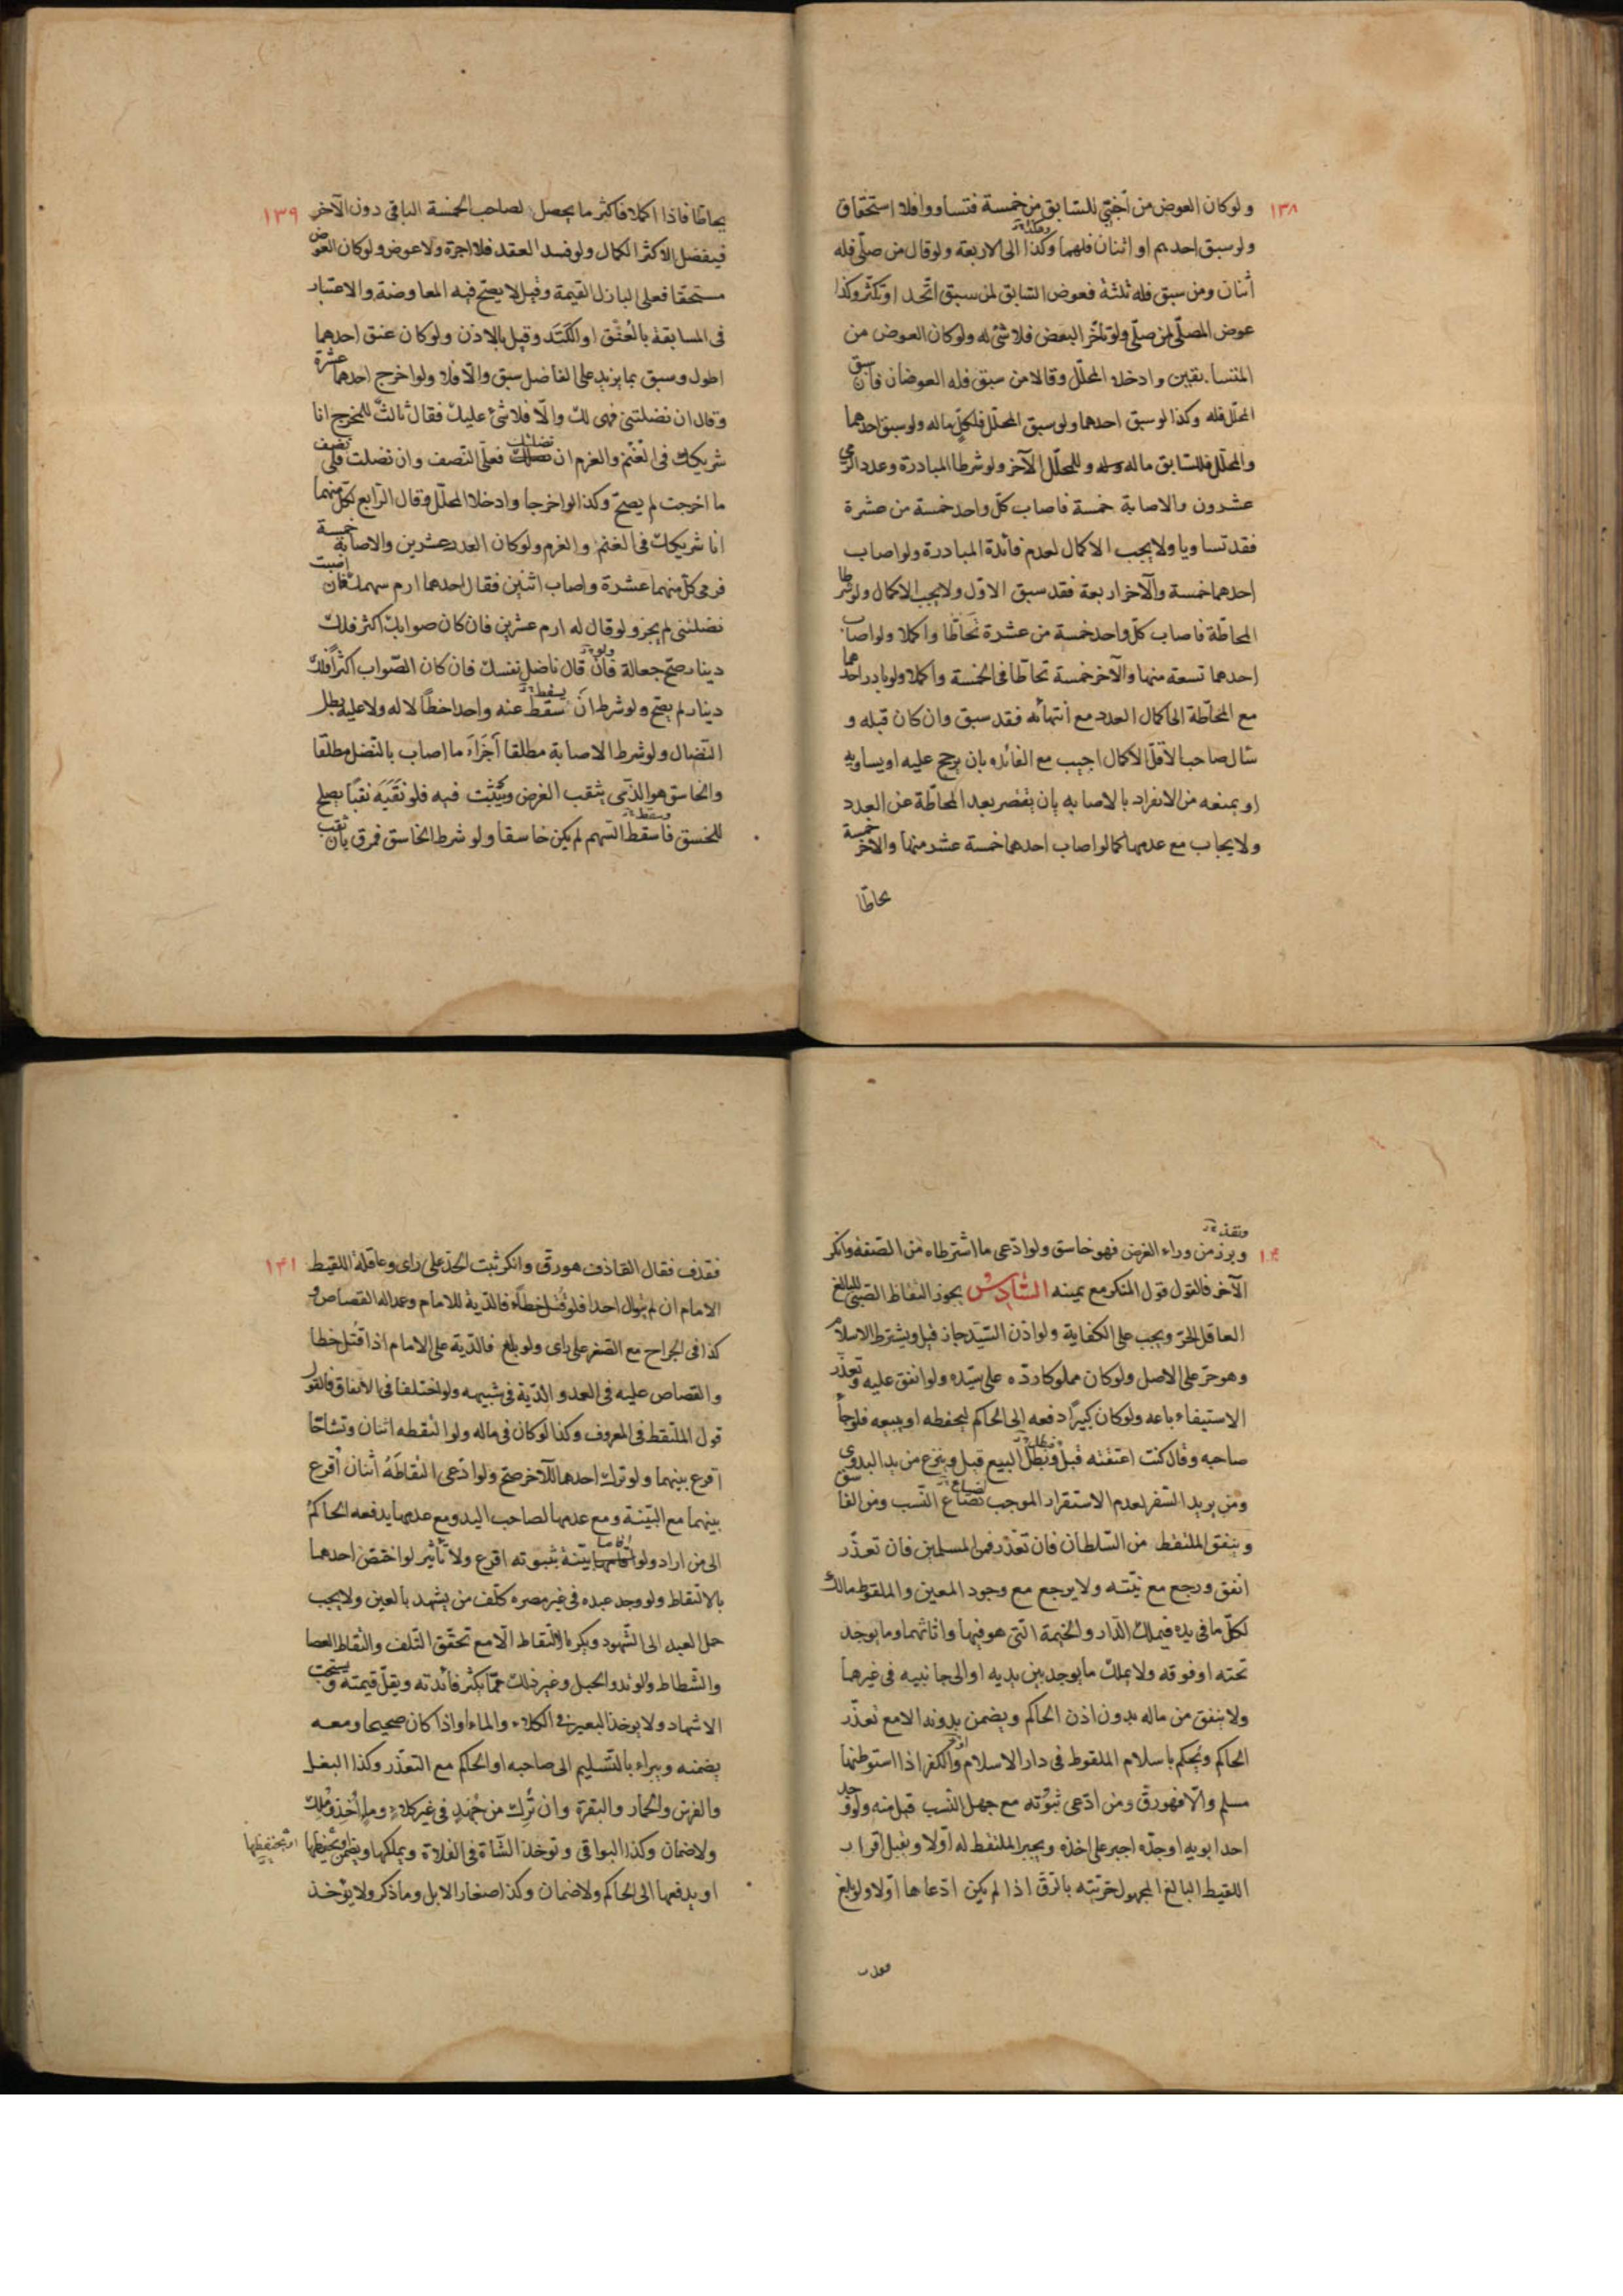 ١٣٨
ولو كان العوض من اجنبي للسابق من خمسة فتساووا فلا استحقاق
ولو سبق احدهم او اثنان فلهما وكذا الى الاربعة ولو قال من صلّى فله
اثنان ومن سبق فله ثلثة فعوض السابق لمن سبق اتّحد او تكثّر وكذا
عوض المصلّى لمن صلّى ولو تأخّر البعض فلا شئ له ولو كان العوض من
المتسابقين وادخلا المحلّل وقالا من سبق فله العوضان فان سبق
المحلّل فله وكذا لو سبق احدهما ولو سبق المحلّل فلكلّ ماله ولو سبق احدهما
والمحلّل فللسابق ماله وللمحلّل الآخر ولو شرطا المبادرة وعدد الرمى
عشرون والاصابة خمسة فاصاب كلّ واحد خمسة من عشرة
فقد تساويا ولا يجب الاكمال لعدم فائدة المبادرة ولو اصاب
احدهما خمسة والآخر اربعة فقد سبق الاوّل ولا يجب الاكمال ولو شرطا
المحاطّة فاصاب كلّ واحد خمسة من عشرة تحاطّا واكملا ولو اصاب
احدهما تسعة منها والآخر خمسة تحاطّا فى الخمسة واكملا ولو بادر احدهما
مع المحاطّة الى اكمال العدد مع انتهائه فقد سبق وان كان قبله و
سأل صاحب الاقلّ الاكمال اجيب مع الفائده بان يرجح عليه او يساويه
او يمنعه من الانفراد بالاصابه بان يقصر بعد المحاطّة عن العدد
ولا يجاب مع عدمها كما لو اصاب احدهما خمسة عشر منها والآخر خمسة
يحاطّا
١٣٩
يحاطّا فاذا اكملا فاكثر ما يحصل لصاحب الخمسة الباقى دون الآخر
فيفضل الاكثر الكمال ولو فسد العقد فلا اجرة ولا عوض ولو كان العوض
مستحقا فعلى الباذل القيمة وقيل لا يصحّ فيه المعاوضة والاعتبار
فى المسابقة بالعُنُق او الكَتَد وقيل بالاذن ولو كان عنق احدهما
اطول وسبق بما يزيد على الفاضل سبق والّا فلا ولو اخرج احدهما عشرة
وقال ان نضلتنى فهى لك والّا فلا شئ عليك فقال ثالثٌ للمخرج انا
شريكك فى الغنم والغرم ان نضلك فعلىّ النّصف وان نضلت فلى نصف
ما اخرجت لم يصحّ وكذا لو اخرجا وادخلا المحلّل وقال الرّابع لكلّ منهما
انا شريكك فى الغنم والغرم ولو كان العدد عشرين والاصابة خمسة
فرمى كلّ منهما عشرة واصاب اثنين فقال احدهما ارم سهمك فان اصبت
نضلتنى لم يجز ولو قال له ارم عشرين فان كان صوابك اكثر فلك
دينار صحّ جعالة فان قال ناضل نفسك فان كان الصّواب اكثر فلك
دينار لم يصحّ ولو شرط ان سقط عنه واحد خطأ لا له ولا عليه بطل
النّضال ولو شرط الاصابة مطلقا أجزأه ما اصاب بالنّصل مطلقا
والخاسق هو الذّى يثقب الغرض ويثبت فيه فلو نقبه نقبًا يصلح
للخسق فاسقط السّهم لم يكن خاسقا ولو شرط الخاسق فمرق بان ثقب
ونفذ
وبرز من وراء الغرض فهو خاسق ولو ادّعى ما اشترطاه من الصّفة وانكر
الآخر فالقول قول المنكر مع يمينه السّادس يجوز التقاط الصّبىّ للبالغ
العاقل الحرّ ويجب على الكفاية ولو اذن السّيّد جاز قيل ويشترط الاسلام
وهو حرّ على الاصل ولو كان مملوكا ردّه على سيّده ولو انفق عليه وتعذّر
الاستيفاء باعه ولو كان كبيرًا دفعه الى الحاكم ليحفظه او يبيعه فلو جاء
صاحبه وقال كنت اعتقته قُبل وبطل البيع قيل وينزع من يد البدوى
ومن يريد السّفر لعدم الاستقرار الموجب لضياع النّسب ومن الفاسق
وينفق الملتقط من السّلطان فان تعذّر فمن المسلمين فان تعذّر
انفق ورجع مع نيّته ولا يرجع مع وجود المعين والملقوط مالك
لكلّ ما فى يده فيملك الدّار والخيمة الّتى هو فيها واثاثهما وما يوجد
تحته او فوقه ولا يملك ما يوجد بين يديه او الى جانبيه فى غيرهما
ولا ينفق من ماله بدون اذن الحاكم ويضمن بدونه الا مع تعذّر
الحاكم ويُحكم باسلام الملقوط فى دار الاسلام والكفر اذا استوطنها
مسلم والّا فهو رقّ ومن ادّعى بنوّته مع جهل النّسب قبل منه ولو وجد
احد ابويه او جدّه اجبر على اخذه ويجبر الملتقط له اوّلا ويقبل اقرار
اللقيط البالغ المجهول حرّيّته بالرّقّ اذا لم يكن ادّعاها اوّلا ولو بلغ
فقذف
١٤١
فقذف فقال القاذف هو رقّ وانكر ثبت الحدّ على راى وعاقلة اللقيط
الامام ان لم يتوال احدا فلو قُتل خطأً فالدّية للامام وعمدا له القصاص و
كذا فى الجراح مع الصّغر على راى ولو بلغ فالدّية على الامام اذا قتل خطا
والقصاص عليه فى العمد والدّية فى شبيهه ولو اختلفا فى الانفاق فالقول
قول الملتقط فى المعروف وكذا لو كان فى ماله ولو التقطه اثنان وتشاحّا
اقرع بينهما ولو ترك احدهما للآخر صحّ ولو ادّعى التقاطَهُ اثنان اقرع
بينهما مع البيّنة ومع عدمها لصاحب اليد ومع عدمها يدفعه الحاكم
الى من اراد ولو اقاما بيّنة بثبوته اقرع ولا تأثير لو اختصّ احدهما
بالالتقاط ولو وجد عبده فى غير مصره كلّف من يشهد بالعين ولا يجب
حمل العبد الى الشّهود ويكره الالتقاط الّا مع تحقّق التّلف والتقاط العصا
والشّظاظ والوتد والحبل وغير ذلك ممّا يكثر فائدته ويقلّ قيمته ويستحبّ
الاشهاد ولا يوخذ البعير فى الكلاء والماء او اذا كان صحيحا ومعه
يضمنه ويبراء بالتّسليم الى صاحبه او الحاكم مع التعذّر وكذا البغل
والفرس والحمار والبقرة وان تُرك من جُهد فى غير كلاءٍ وماءٍ أُخذ ومُلك
ولا ضمان وكذا البواقى وتوخذ الشّاة فى الفلاة ويملكها ويضمن
او يدفعها الى الحاكم ولا ضمان وكذا صغار الابل وما ذكر ولا يؤخذ